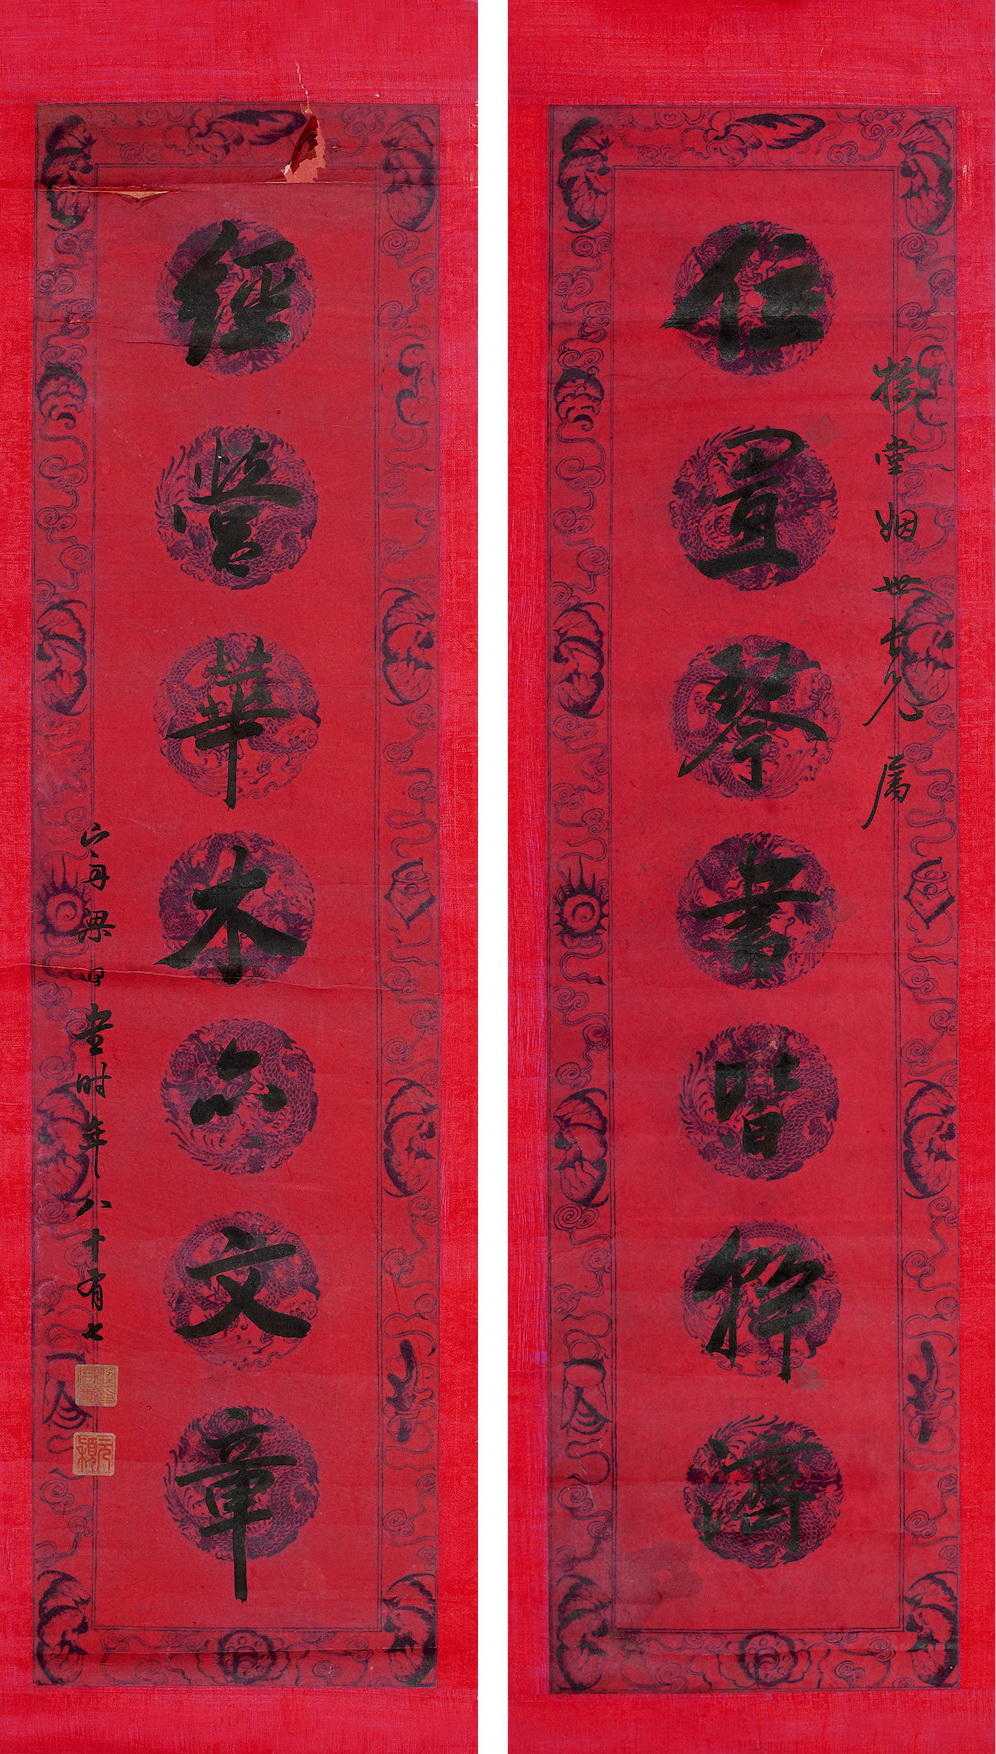 樹堂姻世大兄屬
位置琴書皆幹濟
經營華木亦文章
山舟梁同書時年八十有七
元穎